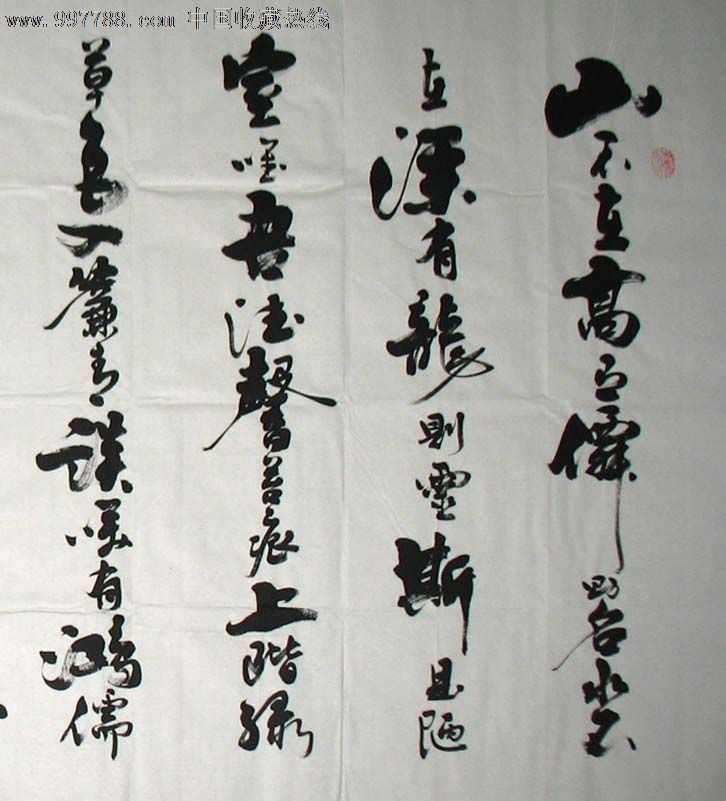 www.997788.com 中国收藏热线
山不在高有僊則名水不
在深有龍則靈斯是陋
室唯吾德馨苔痕上階綠
草色入簾青談笑有鴻儒